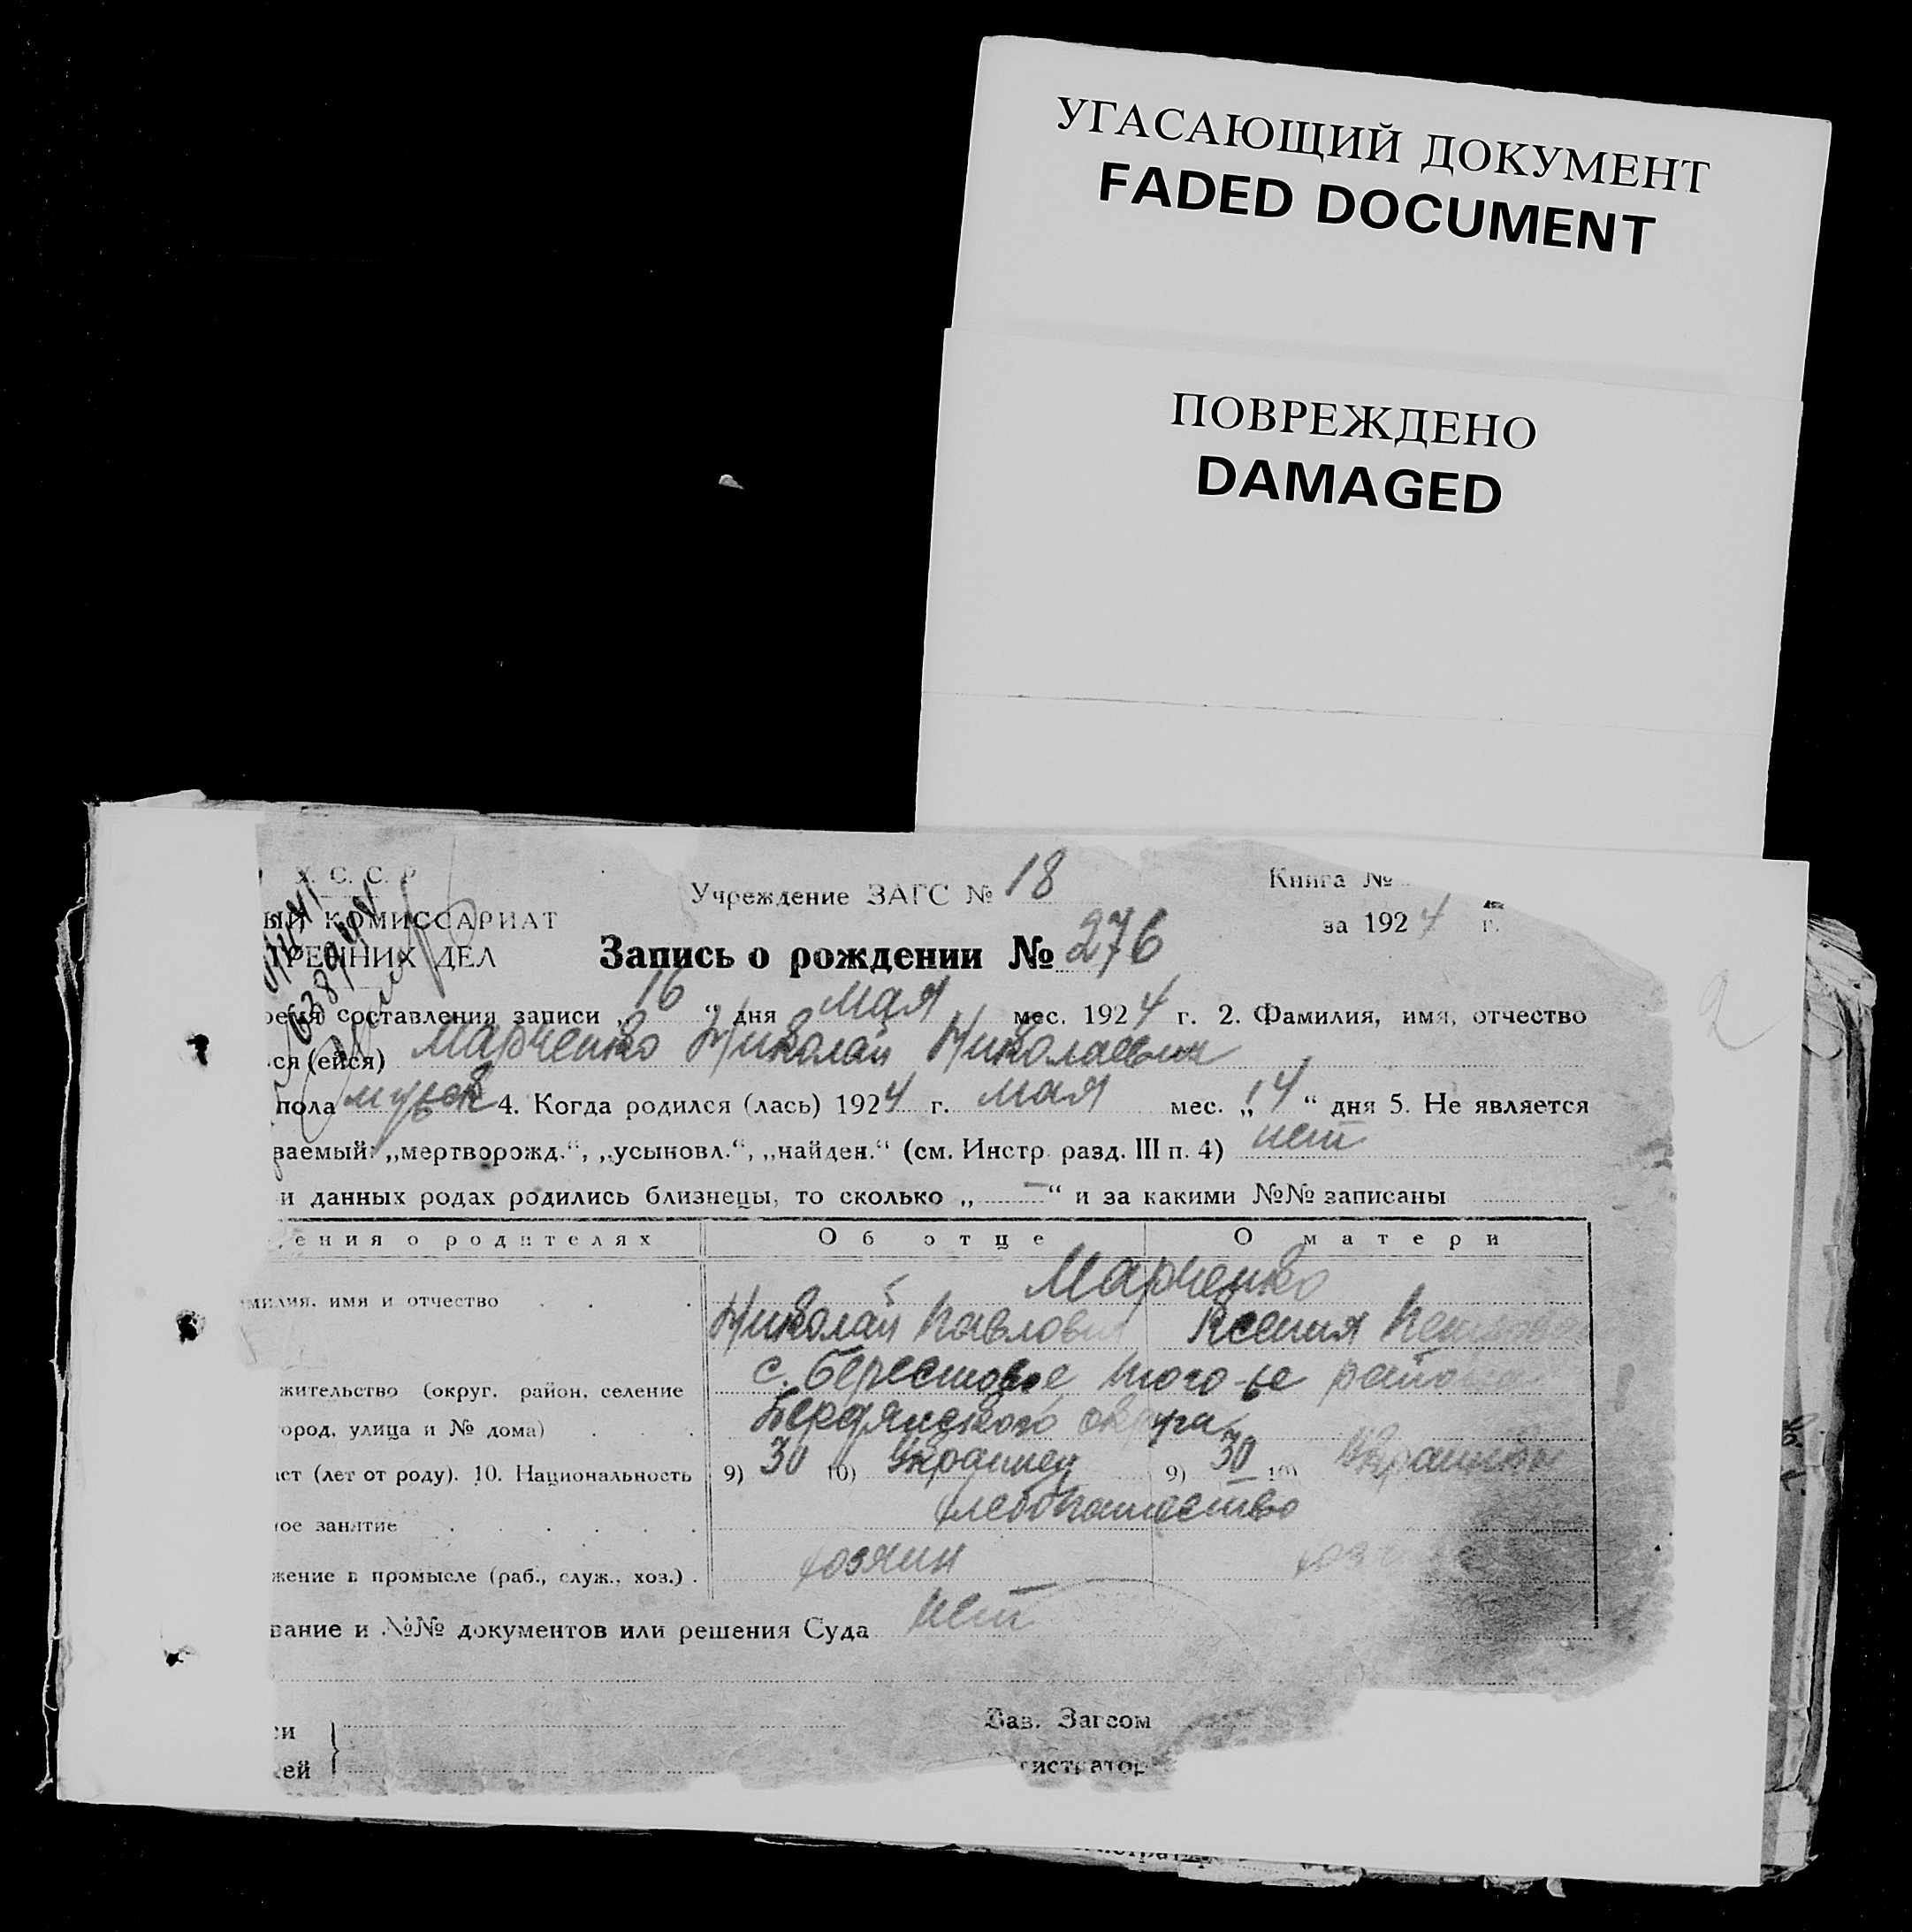 УГАСАЮЩИЙ ДОКУМЕНТ
FADED DOCUMENT
ПОВРЕЖДЕНО
DAMAGED
Х. С. С. Р
ЫЙ КОМИССАРИАТ
ТРЕННИХ ДЕЛ
Учреждение ЗАГС № 18
Книга №
за 1924 г.
Запись о рождении № 276
ремя составления записи „16“ дня мая мес. 1924 г. 2. Фамилия, имя, отчество
ся (ейся) Марченко Николай Николаевич
пола мужск 4. Когда родился (лась) 1924 г. мая мес. „14“ дня 5. Не является
ваемый: „мертворожд.“, „усыновл.“, „найден.“ (см. Инстр. разд. III п. 4) нет
и данных родах родились близнецы, то сколько „—“ и за какими №№ записаны
ения о родителях Об отце О матери
Марченко
милия, имя и отчество
Николай Павлович Ксения
с. Берестовое того-же района
жительство (округ, район, селение
Бердянского округа
город, улица и № дома)
ст (лет от роду). 10. Национальность 9) 30 10) Украинец 9) 30 10) Украинка
хлебопашество
ое занятие
хозяин
жение в промысле (раб., служ., хоз.)
вание и №№ документов или решения Суда нет
си
ей
Зав. Загсом
гистратор
2